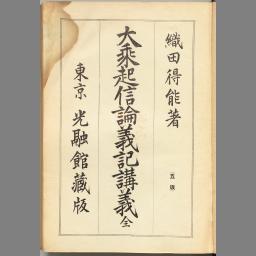 織田得能著
五版
大乘起信論義記講義全
東京 光融館藏版